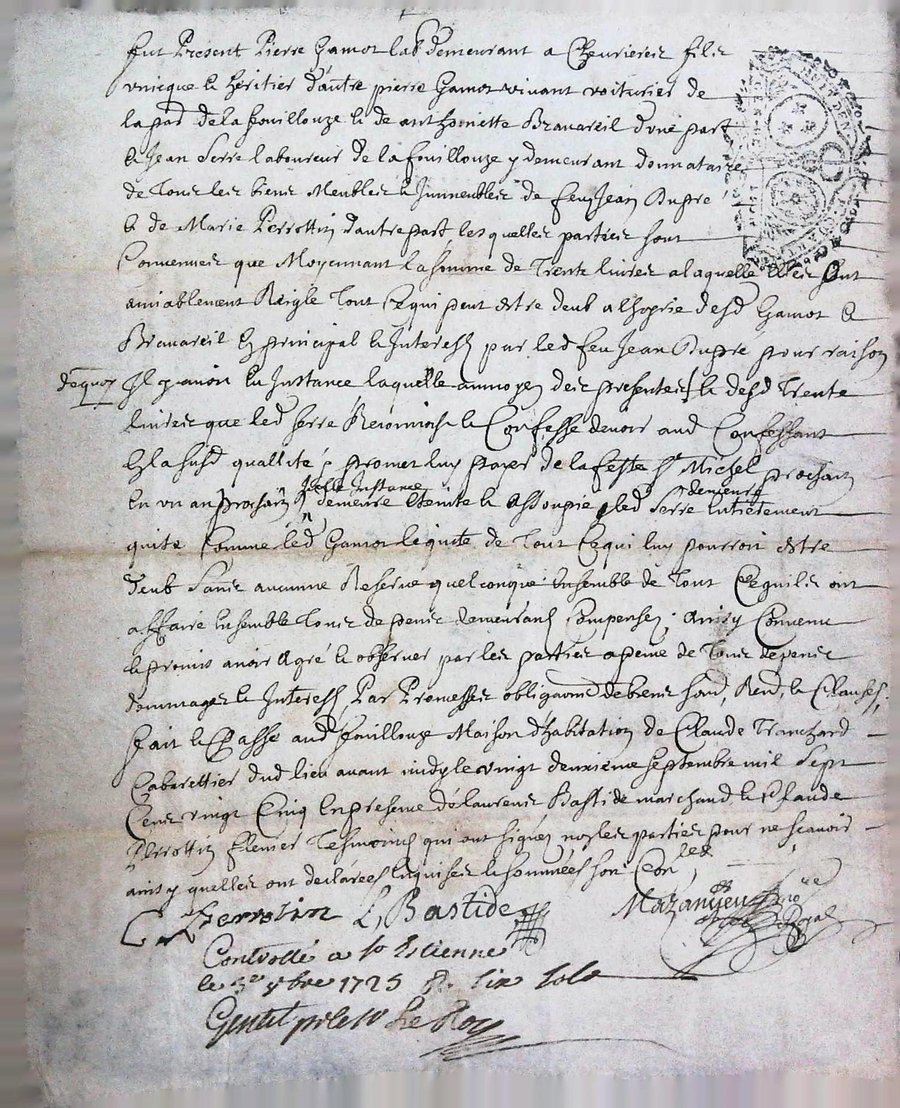 fut Present Pierre Gamot lab<sup>r</sup> demeurant a Cheurieres fils
vnicque & heritier d'autre pierre Gamot viuant voiturier de
la par de la fouillouze & de anthoinette Brauareil d'vne part
& Jean Serre laboureur de la fouillouze y demeurant donnataire
de Tous les biens Meubles & Immeubles de feu Jean Dupre
& de Marie Perrottin d'autre part lesquelles parties sont
Conuenues que Moyennant la somme de Trente liures a laquelle elles ont
amiablement Reiglé Tout Ce qui peut estre deub a l'hoyrie desd Gamot &
Brauareil En principal & Interests par led feu Jean Dupre pour raison
dequoy Il y auoit En Instance laquelle au moyen des presentes & desd Trente
liures que led Serre Reconnoist & Confesse deuoir aud Confessant
En la susd quallité & promet luy payer de la feste St Michel prochain
En vn an prochain Icelle Instance demeure Eteinte & Assoupie led Serre demeure Entierement
quite Comme led Gamot le quite de Tout Ce qui luy pourroit estre
deub Sans aucunne Reserue quelconque Ensemble de Tout Ce quils ont
affaire Ensemble Tous depens demeurant Compensez Ainsy Conuenu
& promis auoir Agré & obseruer par les parties a peine de Tous depens
dommages & Interests Par Promesses obligaons de biens soub, Ren, & Clauses,
fait & Passé aud fouillouze Maison d'habitation de Claude Tranchard
Cabarettier dud lieu auant midy le vingt deuxieme septembre mil Sept
Cens vingt Cinq En presence de laurens Bastide marchand & Claude
Perrottin Tesmoins qui ont signez non les parties pour ne scauoir
ainsy quelles ont declarées Enquises & sommées son Con
C Perrotin L Bastide Mazanyeu No<sup>re</sup> Royal
Controllé a St Estienne
le 7bre 1725 R. six sols
Gentil pr le Sr Le Roy